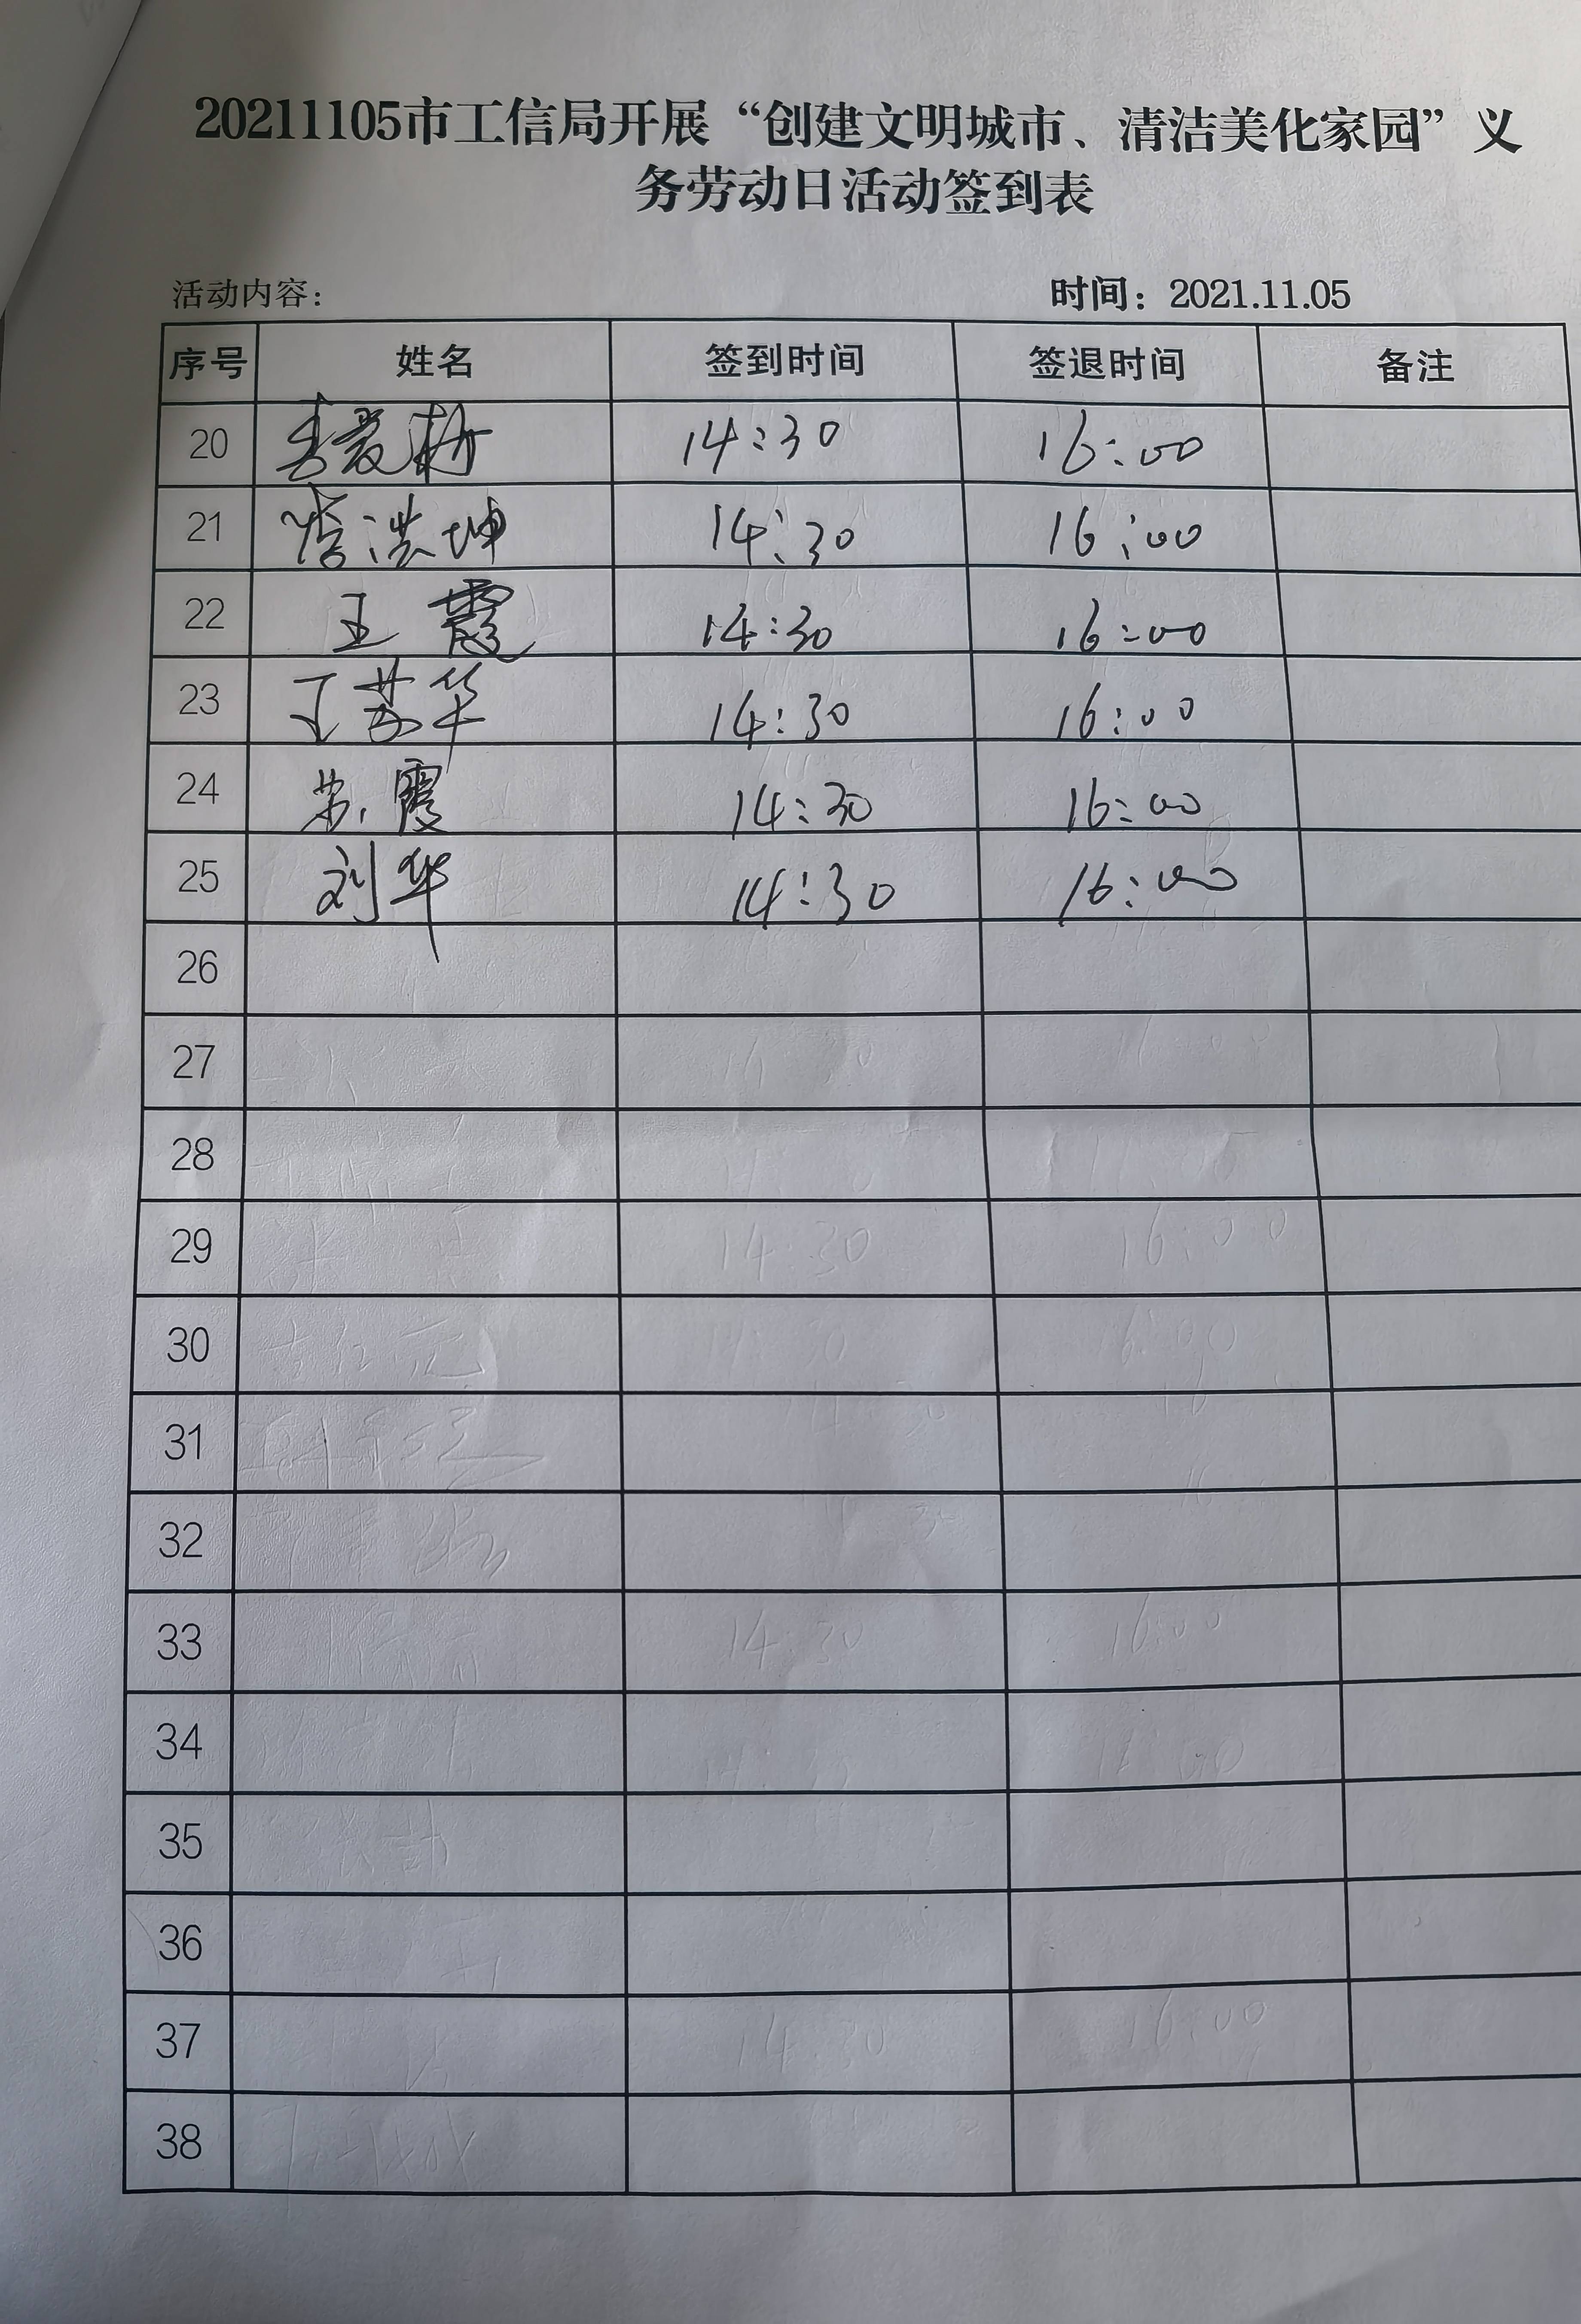 20211105市工信局开展“创建文明城市、清洁美化家园”义
务劳动日活动签到表
活动内容: 时间: 2021.11.05
序号 姓名 签到时间 签退时间 备注
20 14:30 16:00
21 14:30 16:00
22 王霞 14:30 16:00
23 王苏华 14:30 16:00
24 苏霞 14:30 16:00
25 刘华 14:30 16:00
26
27
28
29
30
31
32
33
34
35
36
37
38